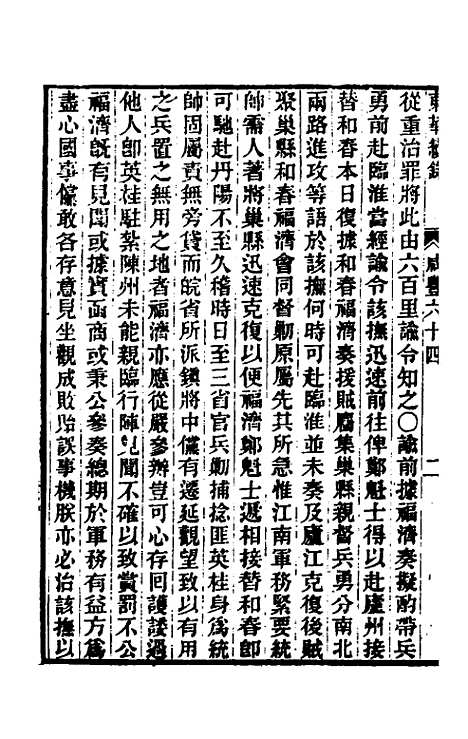 東華續錄　咸豐六十四　二
從重治罪將此由六百里諭令知之〇諭前據福濟奏擬酌帶兵
勇前赴臨淮當經諭令該撫迅速前往俾鄭魁士得以赴廬州接
替和春本日復據和春福濟奏援賊麕集巢縣親督兵勇分南北
兩路進攻等語於該撫何時可赴臨淮並未奏及廬江克復後賊
聚巢縣和春福濟會同督勦原屬先其所急惟江南軍務緊要統
帥需人著將巢縣迅速克復以便福濟鄭魁士遞相接替和春卽
可馳赴丹陽不至久稽時日至三省官兵勦捕捻匪英桂身爲統
帥固屬責無旁貸而皖省所派鎮將中儻有遷延觀望致以有用
之兵置之無用之地者福濟亦應從嚴參辦豈可心存回護諉過
他人卽英桂駐紮陳州未能親臨行陣見聞不確以致賞罰不公
福濟旣有見聞或據實函商或秉公參奏總期於軍務有益方爲
盡心國事儻敢各存意見坐觀成敗貽誤事機朕亦必治該撫以